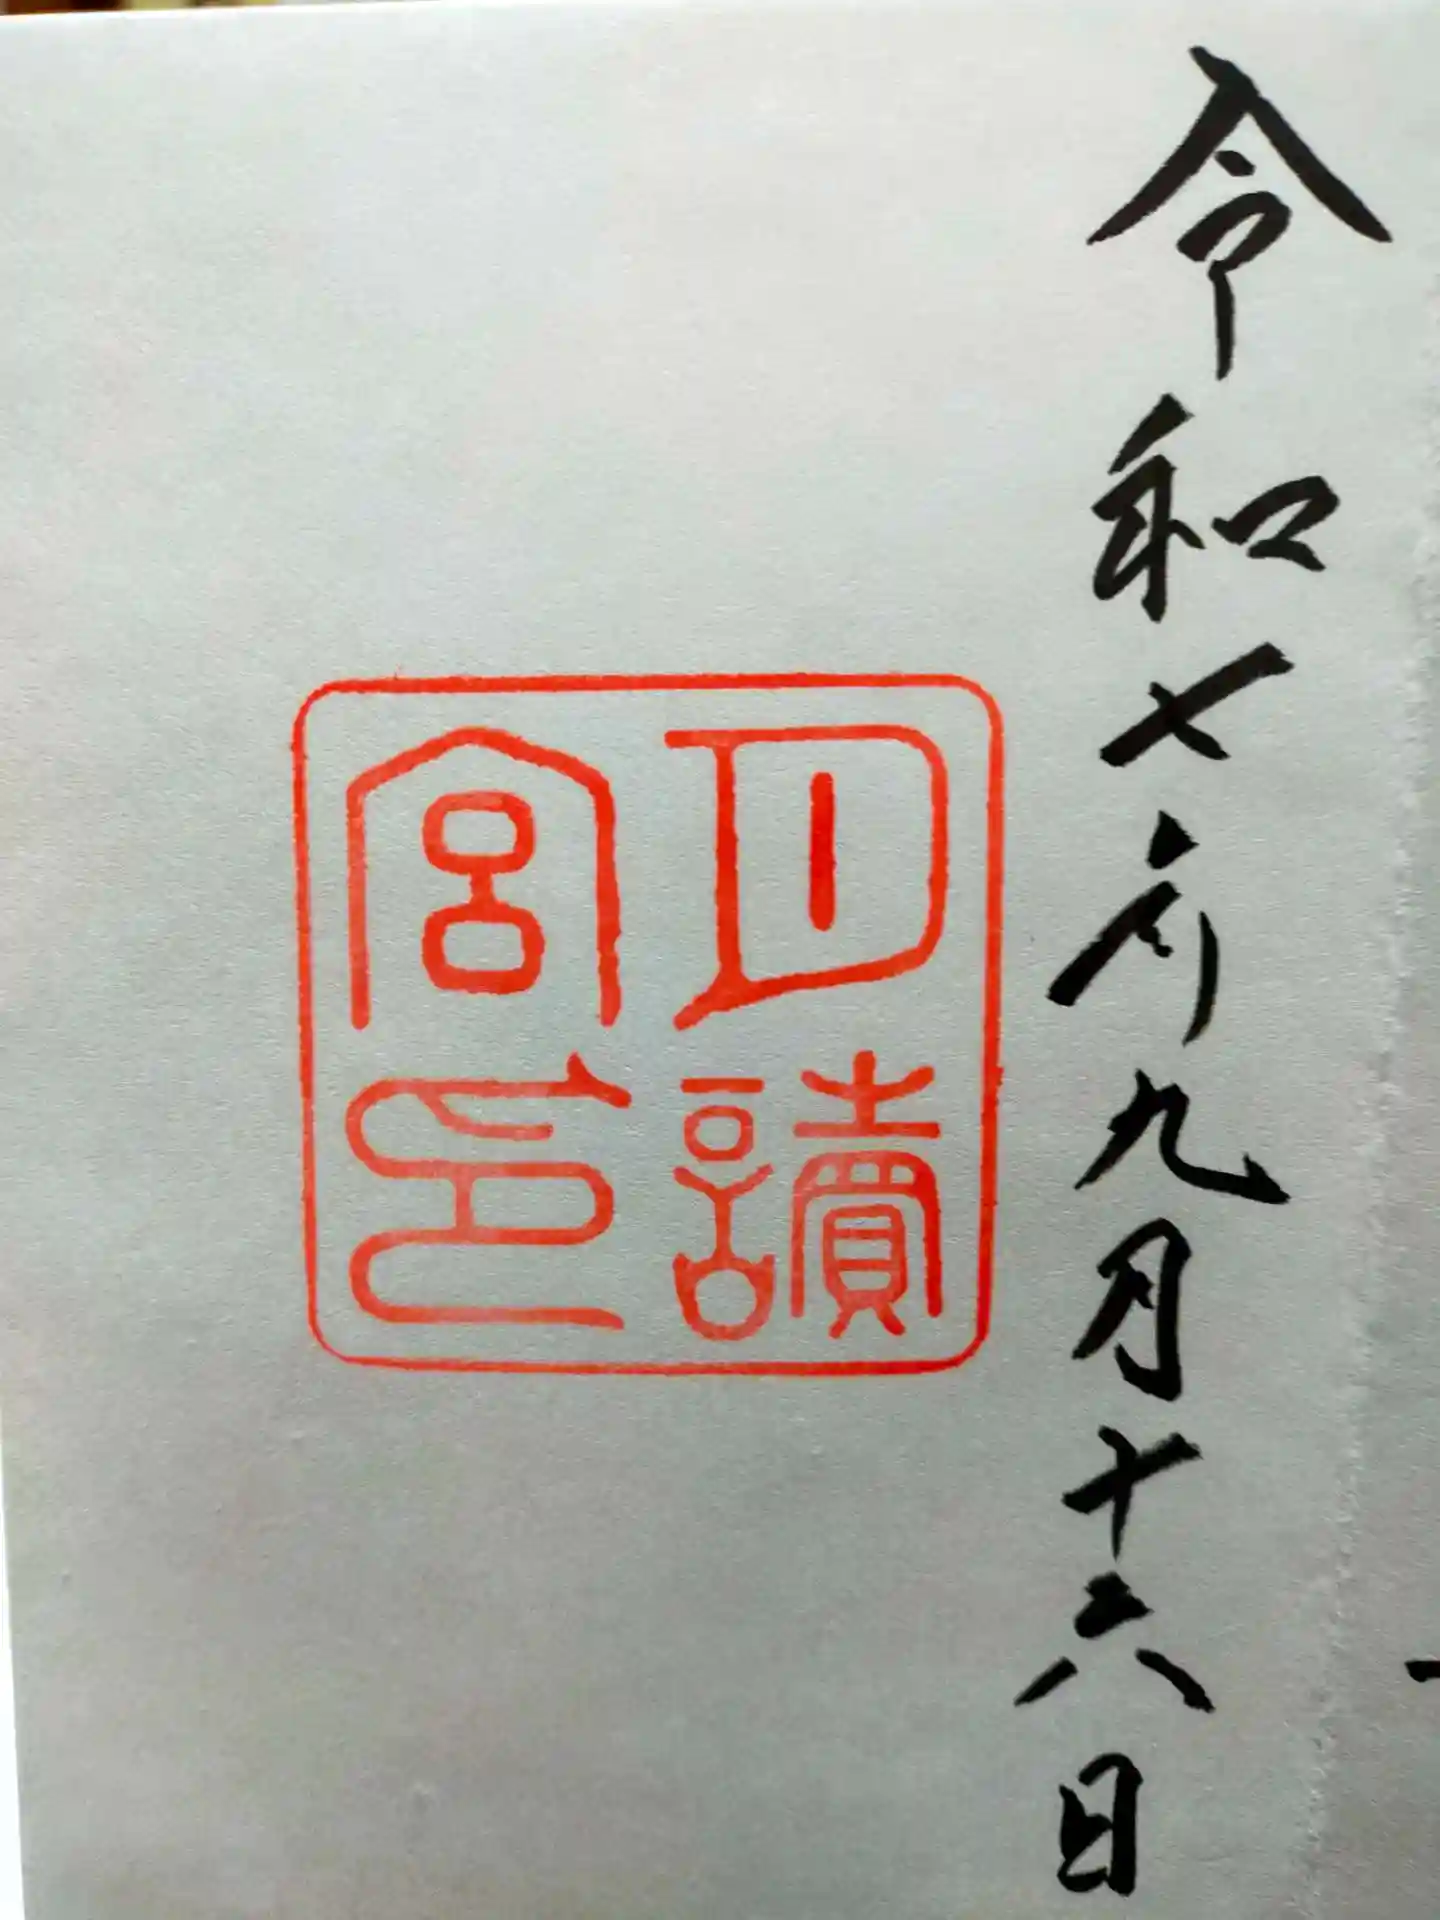 令和七年九月十六日
月讀
宮印